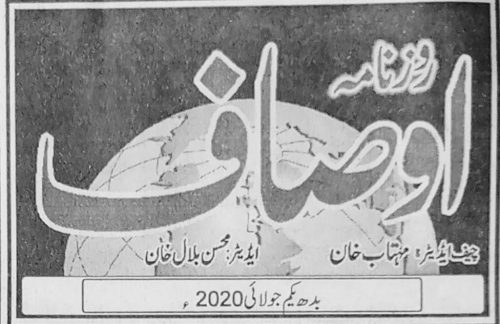 روزنامہ
اوصاف
چیف ایڈیٹر: مہتاب خان ایڈیٹر: محسن بلال خان
بدھ یکم جولائی 2020 ء